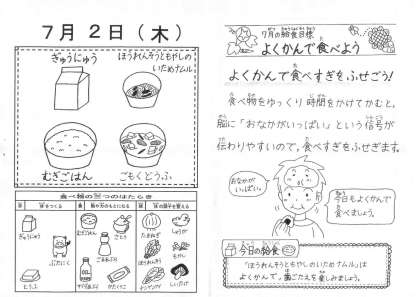 7月2日(木)
ぎゅうにゅう
ほうれんそうともやしの
いためナムル
むぎごはん
ごもくどうふ
食べ物の三つのはたらき
ぎゅうにゅう
ぶたにく
とうふ
むぎごはん
さとう
ごまあぶら
かたくりこ
たまねぎ
しょうが
もやし
にんじん
しいたけ
7月の給食目標
よくかんで食べよう
よくかんで食べすぎをふせごう!
食べ物をゆっくり時間をかけてかむと、
脳に「おなかがいっぱい」という信号が
伝わりやすいので、食べすぎをふせぎます。
おなかが
いっぱい。
今日もよくかんで
食べましょう。
今日の給食
「ほうれんそうともやしのいためナムル」は
よくかんで、歯ごたえを楽しみましょう。